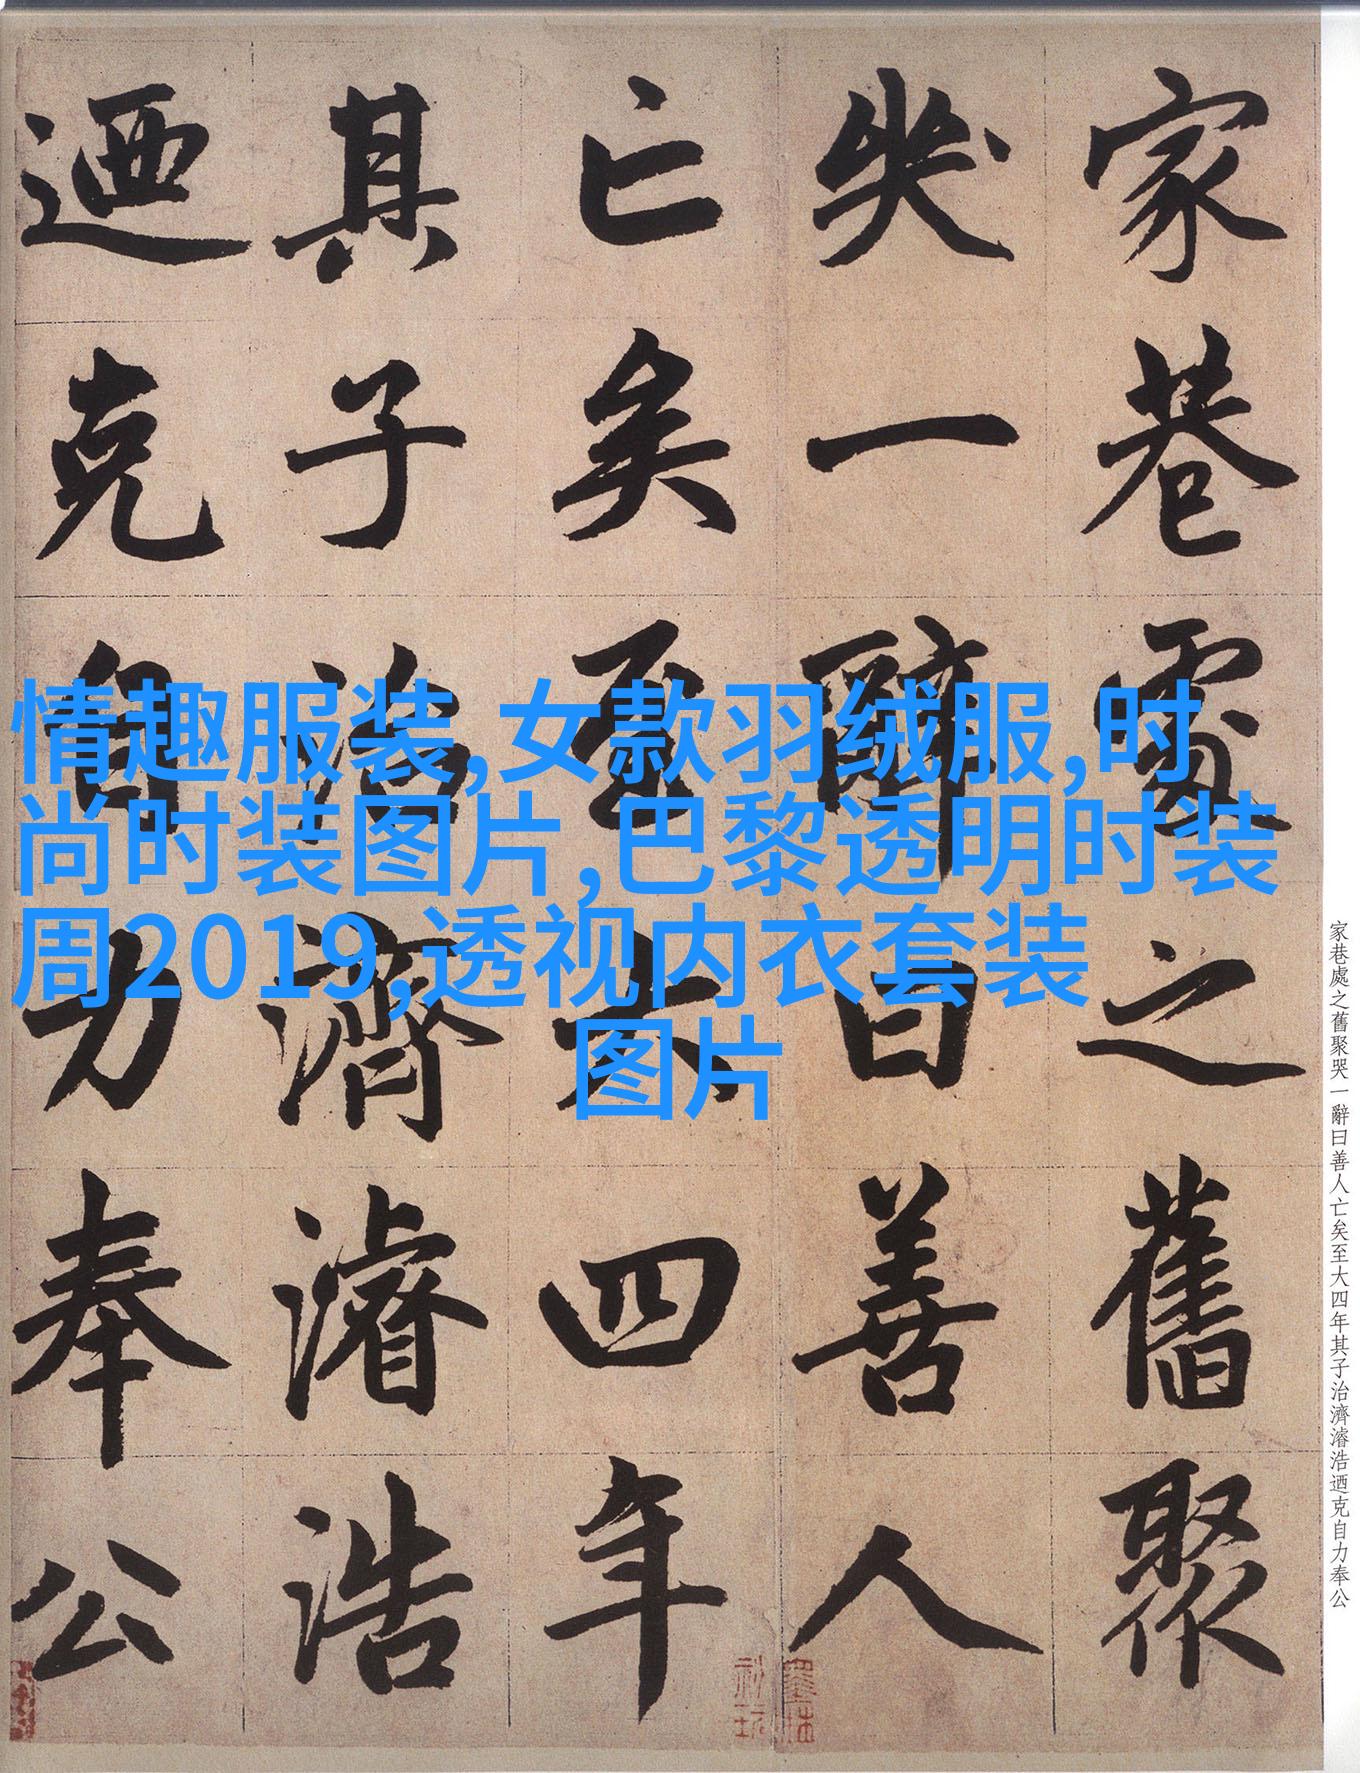 家巷處之舊聚
哭一辭曰善人
亡矣至大四年
其子治濟濬浩
迺克自力奉公
情趣服装,女款羽绒服,时
尚时装图片,巴黎透明时装
周2019,透视内衣套装
图片
家巷處之舊聚哭一辭曰善人亡矣至大四年其子治濟濬浩迺克自力奉公